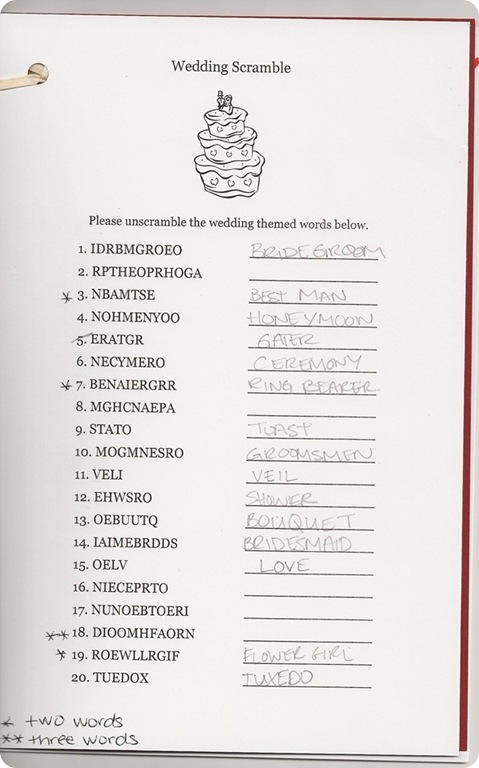 Wedding Scramble
Please unscramble the wedding themed words below.
1. IDRBMGROEO BRIDEGROOM
2. RPTHEOPRHOGA
* 3. NBAMTSE BEST MAN
4. NOHMENYOO HONEYMOON
5. ERATGR GATER
6. NECYMERO CEREMONY
* 7. BENAIERGRR RING BEARER
8. MGHCNAEPA
9. STATO TOAST
10. MOGMNESRO GROOMSMEN
11. VELI VEIL
12. EHWSRO SHOWER
13. OEBUUTQ BOUQUET
14. IAIMEBRDDS BRIDESMAID
15. OELV LOVE
16. NIECEPRTO
17. NUNOEBTOERI
** 18. DIOOMHFAORN
* 19. ROEWLLRGIF FLOWER GIRL
20. TUEDOX TUXEDO
* two words
** three words